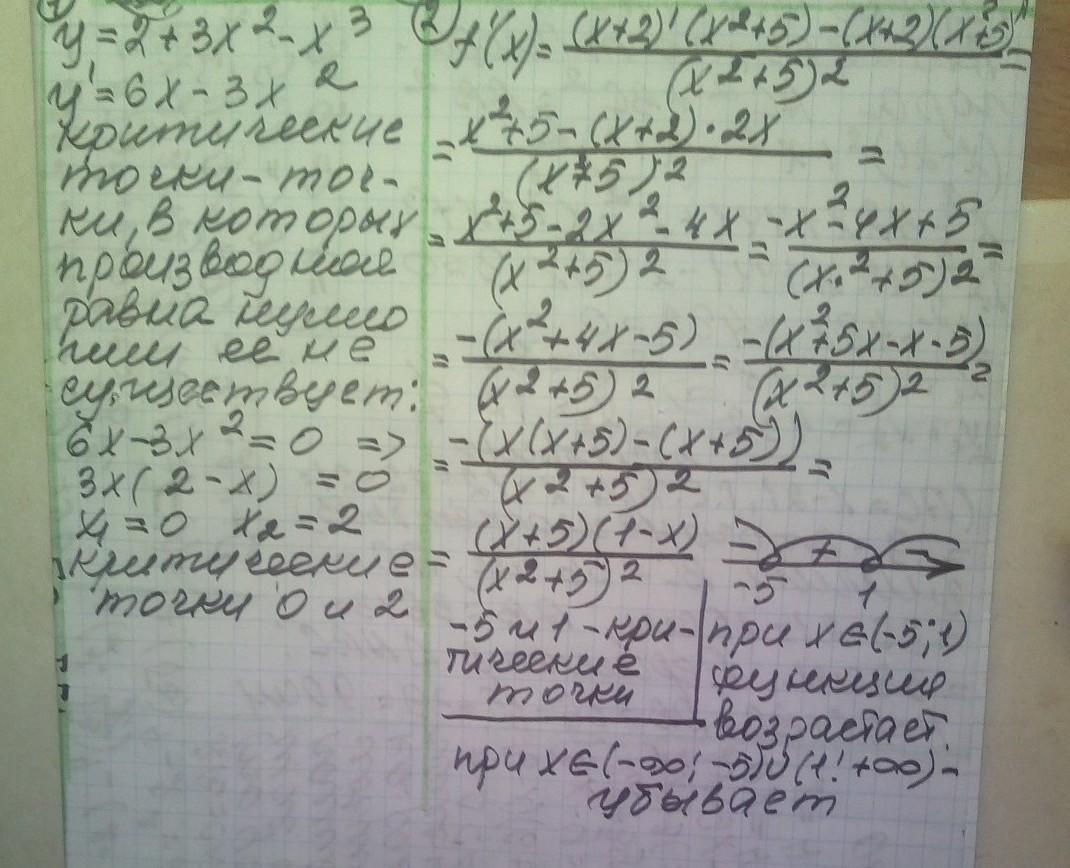 1)
y = 2 + 3x² - x³
y' = 6x - 3x²
критические
точки - точ-
ки, в которых
производная
равна нулю
или ее не
существует:
6x - 3x² = 0 =>
3x(2 - x) = 0
x₁ = 0 x₂ = 2
критические
точки 0 и 2
2) f'(x) = ((x+2)'(x²+5) - (x+2)(x²+5)')/(x²+5)² =
= (x²+5 - (x+2)·2x)/(x²+5)² =
= (x²+5 - 2x² - 4x)/(x²+5)² = (-x² - 4x + 5)/(x²+5)² =
= -(x²+4x-5)/(x²+5)² = -(x²+5x-x-5)/(x²+5)² =
= -(x(x+5) - (x+5))/(x²+5)² =
= (x+5)(1-x)/(x²+5)²
- + -
-5 1
-5 и 1 - кри-
тические
точки
при x ∈ (-5; 1)
функция
возрастает.
при x ∈ (-∞; -5) ∪ (1; +∞) -
убывает